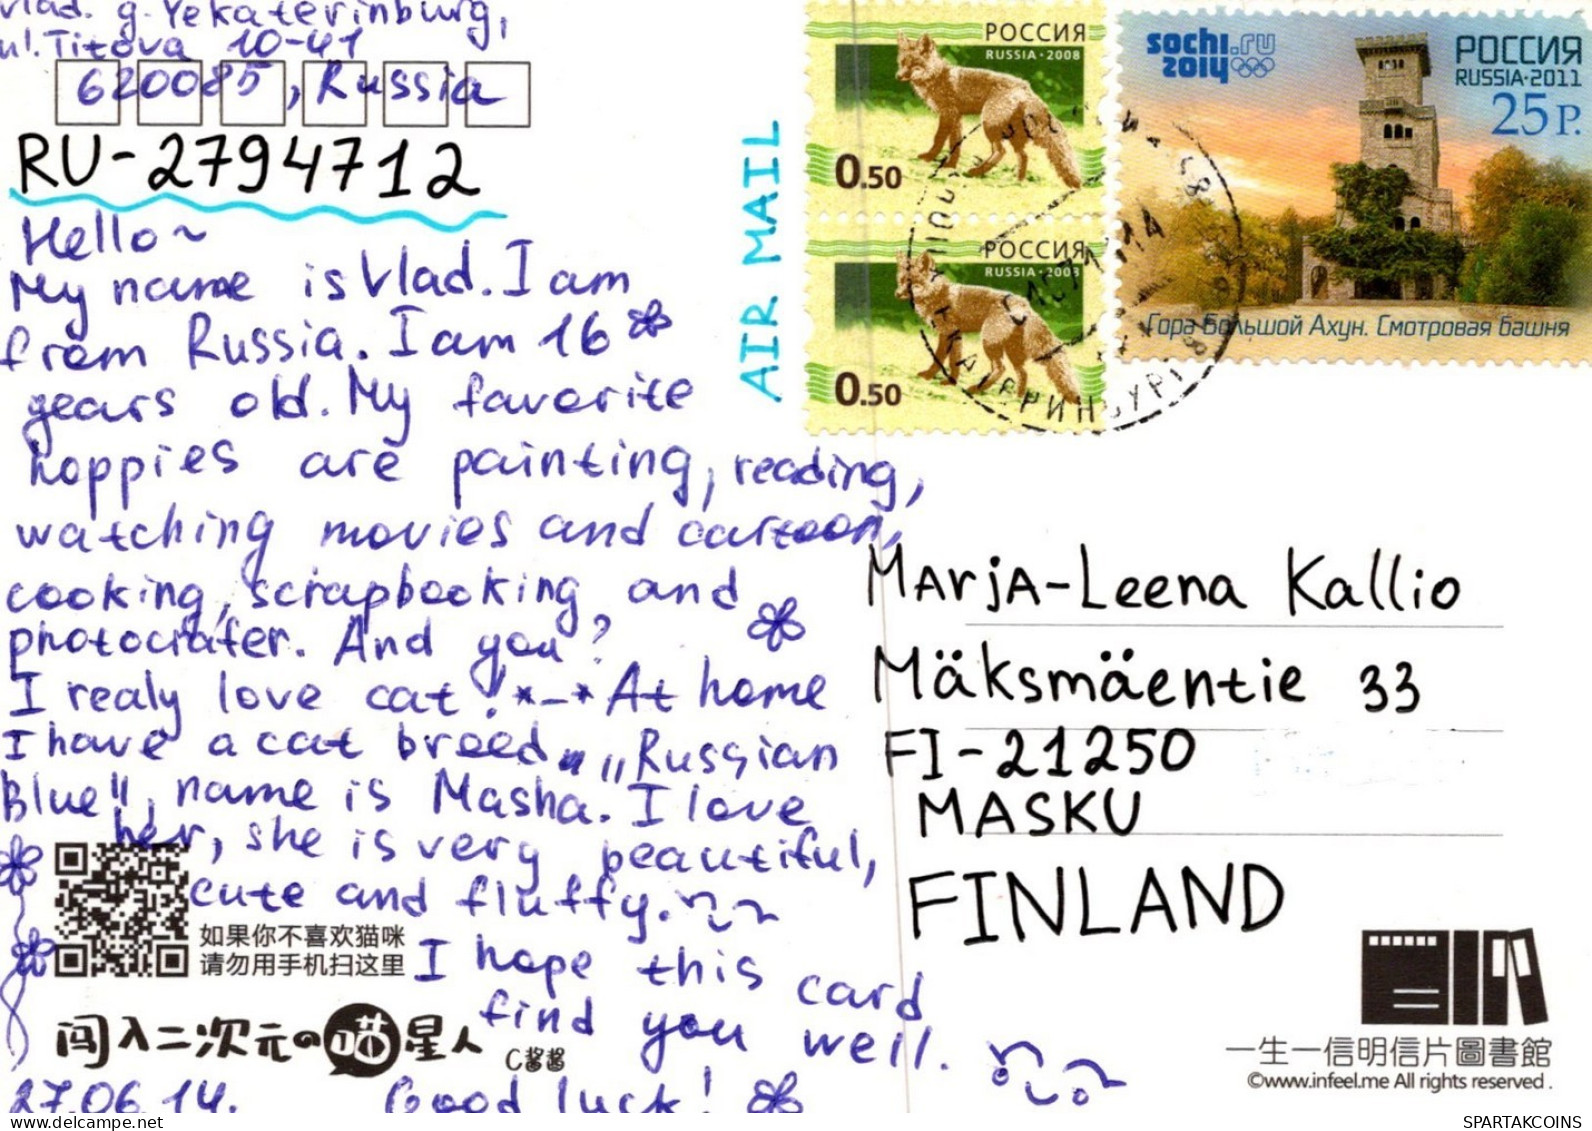 Vlad. g. Yekaterinburg,
ul. Titova 10-41
620085, Russia
RU-2794712
Hello~
My name is Vlad. I am
from Russia. I am 16
years old. My favorite
hoppies are painting, reading,
watching movies and cartoon,
cooking, scrapbooking and
photocrafer. And you?
I realy love cat! *_* At home
I have a cat breed „Russian
Blue", name is Masha. I love
her, she is very peautiful,
cute and fluffy.
I hope this card
find you well.
27.06.14. Good luck!
AIR MAIL
РОССИЯ
RUSSIA·2008
0.50
РОССИЯ
RUSSIA·2008
0.50
sochi.ru
2014
РОССИЯ
RUSSIA·2011
25 Р.
Гора Большой Ахун. Смотровая башня
Marja-Leena Kallio
Mäksmäentie 33
FI-21250
MASKU
FINLAND
如果你不喜欢猫咪
请勿用手机扫这里
闯入二次元の喵星人
C酱酱
一生一信明信片圖書館
©www.infeel.me All rights reserved .
www.delcampe.net
SPARTAKCOINS